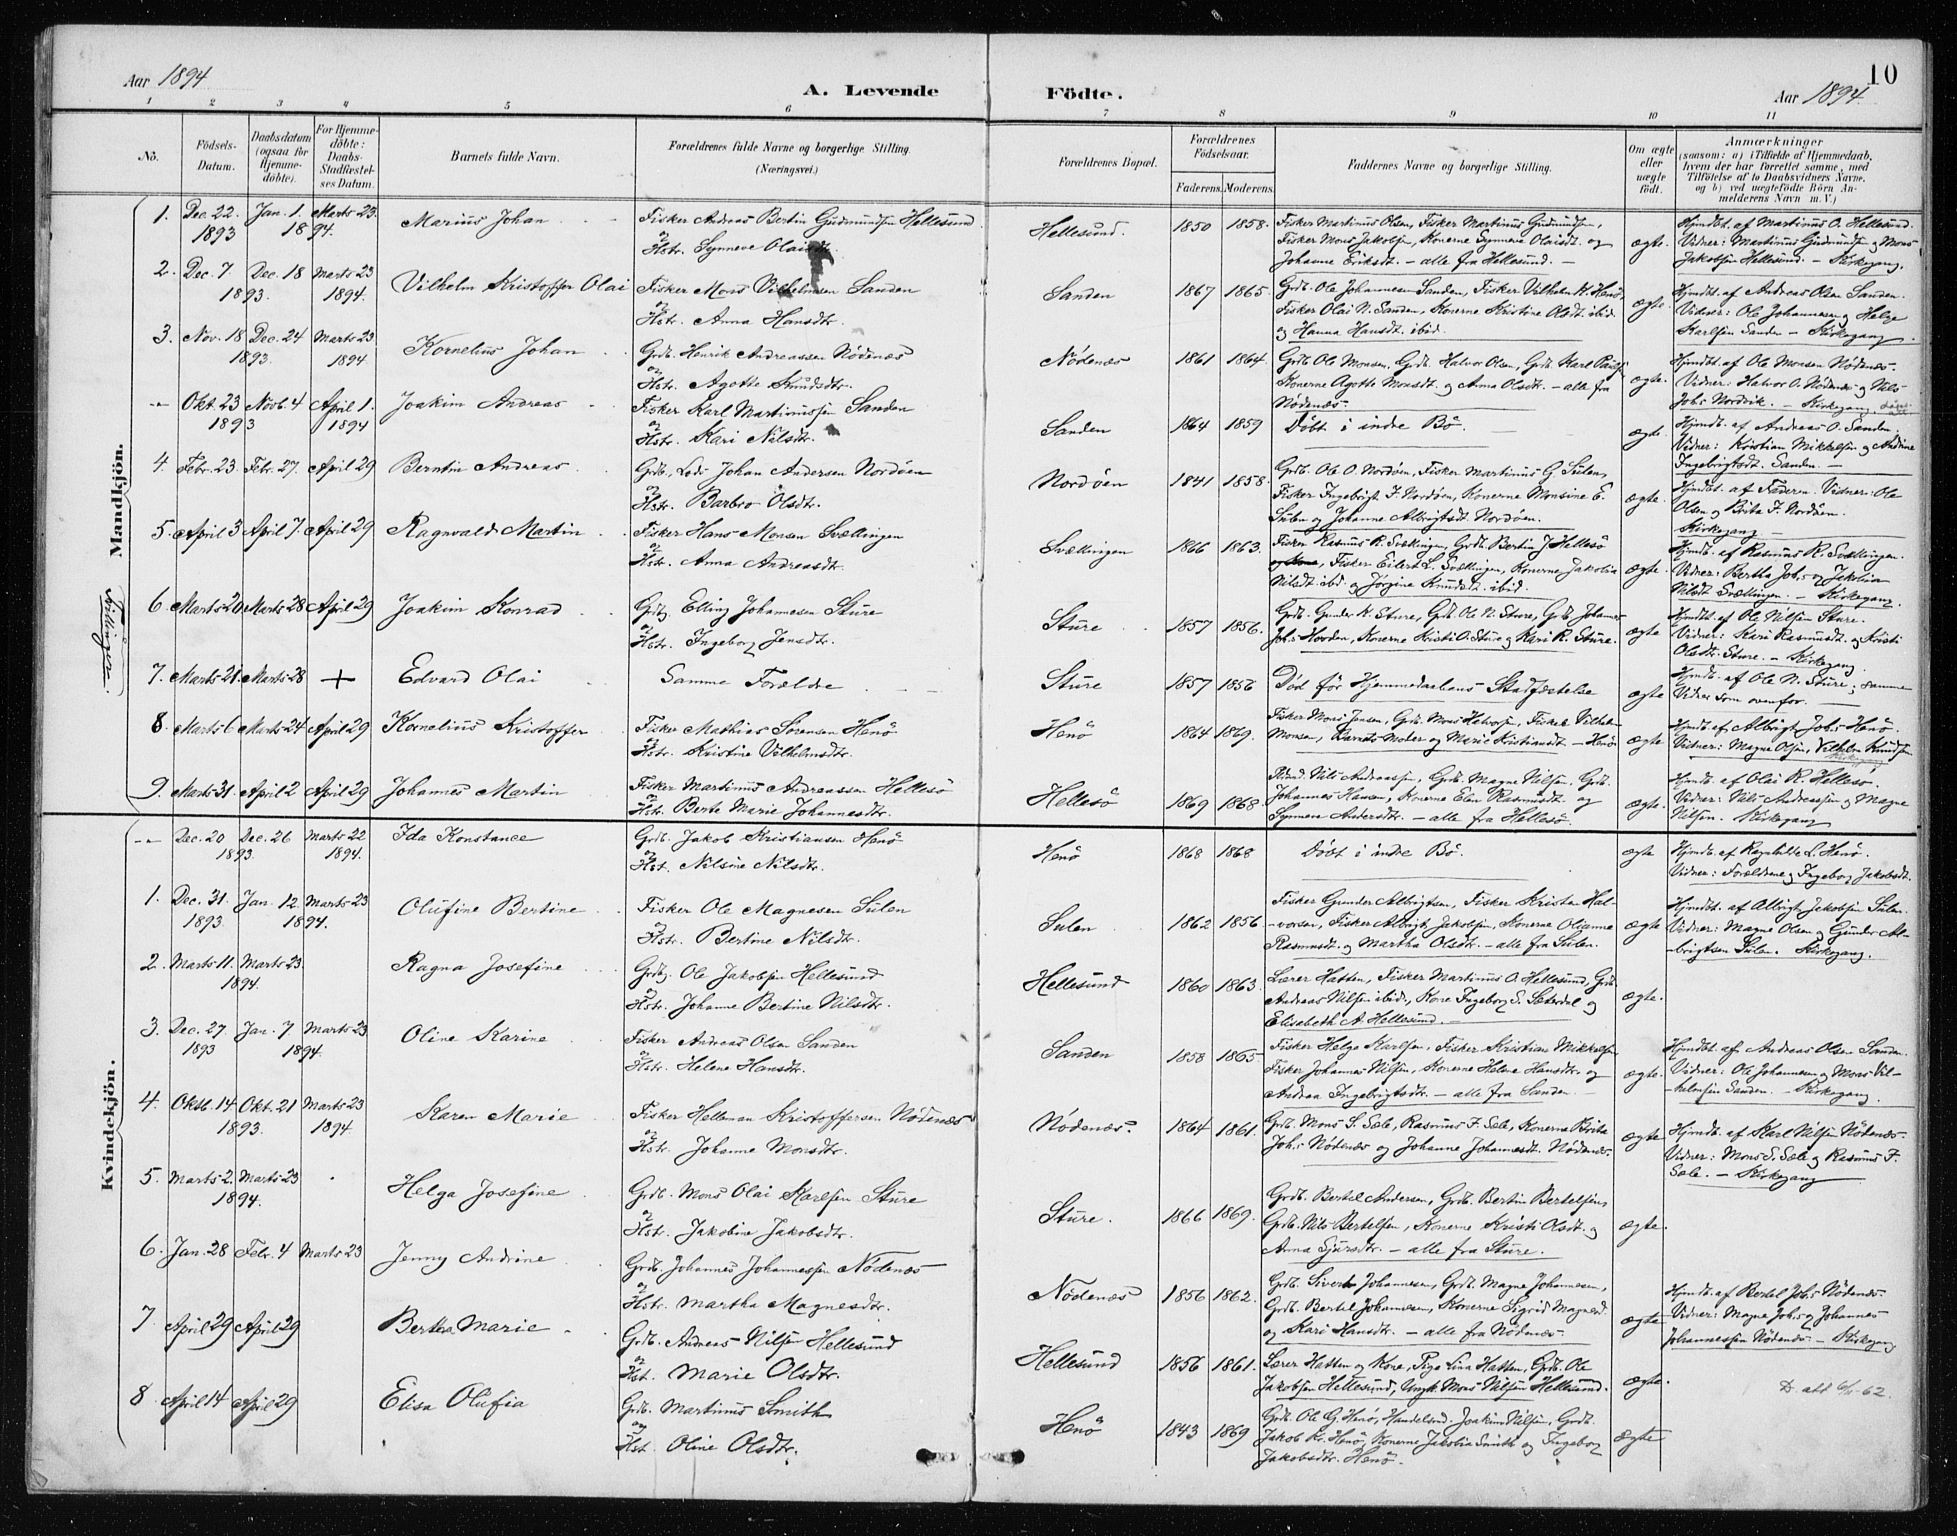 Aar 1894
A. Levende
Födte.
Aar 1894.
10
1 2 3 4 5 6 7 8 9 10 11
No.
Födsels-Datum.
Daabsdatum (ogsaa for Hjemme-döbte).
For Hjemme-döbte: Daabs-Stadfæstel-ses Datum.
Barnets fulde Navn.
Forældrenes fulde Navne og borgerlige Stilling. (Næringsvei.)
Forældrenes Bopæl.
Forældrenes Födselsaar.
Faderens. Moderens.
Faddernes Navne og borgerlige Stilling.
Om ægte eller uægte födt.
Anmærkninger (saasom: a) i Tilfælde af Hjemmedaab, hvem der har forrettet samme, med Tilföielse af to Daabsvidners Navne, og b) ved uægtefödte Börn An-melderens Navn m. V.)
Mandkjön.
1. Dec. 22. 1893 Jan. 1. Marts 23. 1894. Marius Johan
Fisker Andreas Bertin Gudmundsen Hellesund
og Hstr. Synneve Olaisdtr.
Hellesund. 1850 1858.
Fisker Martinus Olsen, Fisker Martinus Gudmundsen,
Fisker Mons Jakobsen, Konerne Synneve Olaisdt. og
Johanne Eriksdt. – alle fra Hellesund. –
ægte.
Hjmdbt. af Martinus O. Hellesund.
Vidner: Martinus Gudmundsen og Mons
Jakobsen Hellesund. – Kirkegang.
2. Dec. 7 1893. Dec. 18 Marts 23 1894. Vilhelm Kristoffer Olai
Fisker Mons Vilhelmsen Sanden
og Hstr. Anna Hansdtr.
Sanden 1867 1865.
Grdb. Ole Johannesen Sanden, Fisker Vilhelm K. Henö
Fisker Olai N. Sanden, Konerne Kristine Olsdt. ibid
og Hanna Hansdt. ibid.
ægte.
Hjmdbt. af Andreas Olsen Sanden.
Vidner: Ole Johannesen og Helge
Karlsen Sanden – Kirkegang.
3. Nov. 18 1893. Dec. 24 Marts 23 1894. Kornelius Johan
Grdb. Henrik Andreassen Nödenæs
og Hstr. Agotte Knudsdtr.
Nödenæs 1861 1864.
Grdb. Ole Monsen, Grdb. Halvor Olsen, Grdb. Karl
Konerne Agotte Monsdt. og Anna Olsdt. – alle fra
Nödenæs.
ægte.
Hjmdbt. af Ole Monsen Nödenæs.
Vidner: Halvor O. Nödenæs og Nils
Johs Nordvik. – Kirkegang.
-"- Okt. 23 1893 Novb. 4 April 1. 1894 Joakim Andreas
Fisker Karl Martinussen Sanden
og Hstr. Kari Nilsdtr.
Sanden 1864 1859 Döbt i indre Bö.
ægte.
Hjmdb. af Andreas O. Sanden.
Vidner: Kristian Mikkelsen og Andrine
Ingebrigtsdt. Sanden. –
4 Febr. 23. Febr. 27. April 29 Berntin Andreas
Grdb., Lods Johan Andersen Nordöen
og Hstr. Barbro Olsdtr.
Nordöen 1841 1858.
Grdb. Ole O. Nordöen, Fisker Martinus G. Sulen,
Fisker Ingebrigt J. Nordöen, Konerne Monsine E.
Sulen og Johanne Albrigtsdt. Nordöen.
ægte.
Hjmdbt. af Faderen. Vidner: Ole
Olsen og Brita J. Nordöen.
Kirkegang –
5. April 3 April 7. April 29 Ragnvald Martin
Fisker Hans Monsen Svællingen
og Hstr. Anna Andreasdtr.
Svællingen 1866 1863.
Fisker Rasmus R. Svællingen, Grdb. Bertin J. Hellesö
Fisker Eilert L. Svællingen, Konerne Jakobia
Nilsdt. ibid og Jörgine Knudsdt. ibid.
ægte.
Hjmdb. af Rasmus R. Svællingen.
Vidner: Bertha Johs og Jakobia
Nilsdt. Svællingen. – Kirkegang.
Tvillinger.
6. Marts 20 Marts 28 April 29 Joakim Konrad
Grdbg. Elling Johannesen Sture
og Hstr. Ingeborg Jensdtr.
Sture 1857 1856.
Grdb. Gunder K. Sture, Grdb. Ole N. Sture, Grdb. Johannes
Johs Horden, Konerne Kristi O. Sture og Kari R. Sture.
ægte
Hjmdbt. af Ole Nilsen Sture.
Vidner: Kari Rasmusdt. og Kristi
Olsdtr. Sture. – Kirkegang.
7. Marts 21. Marts 28 + Edvard Olai
Samme Forældre
Sture 1857 1856 Död för Hjemmedaabens Stadfæstelse
ægte
Hjmdb. af Ole N. Sture; samme
Vidner som ovenfor. –
8. Marts 6 Marts 24 April 29 Kornelius Kristoffer
Fisker Mathias Sörensen Henö
og Hstr. Kristine Vilhelmsdtr.
Henö 1864 1869.
Fisker Mons Jensen, Grdb. Mons Halvorsen, Fisker Vilhelm
Monsen, Barnets Moder og Marie Kristiansdt. – Henö
ægte
Hjmdb. af Albrigt Johs Henö.
Vidner: Magne Olsen, Vilhelm Knudsen
Kirkegang
9. Marts 31. April 2 April 29 Johannes Martin
Fisker Martinus Andreassen Hellesö
og Hstr. Berte Marie Johannesdtr.
Hellesö 1869 1868
Nils Andreassen, Grdb. Magne Nilsen, Grdb.
Johannes Hansen, Konerne Elen Rasmusdt. og
Synneve Andersdtr. – alle fra Hellesö.
ægte.
Hjmdb. af Olai R. Hellesö.
Vidner: Nils Andreassen og Magne
Nilsen. Kirkegang
Kvindekjön.
-"- Dec. 20 1893. Dec. 26 Marts 22 1894. Ida Konstance
Grdb. Jakob Kristiansen Henö
og Hst. Nilsine Nilsdtr.
Henö 1868 1868 Döbt i indre Bö.
ægte
Hjmdb. af Ragnhilde L. Henö.
Vidner: Forældrene og Ingeborg Jakobsdt.
1. Dec. 31 1893. Jan. 12. Marts 23 1894. Olufine Bertine
Fisker Ole Magnesen Sulen
og Hstr. Bertine Nilsdtr.
Sulen 1862 1856
Fisker Gunder Albrigtsen, Fisker Kristen Hal-
-vorsen, Fisker Albrigt Jakobsen, Konerne Olianne
Rasmusdt. og Martha Olsdtr. – alle fra Sulen.
ægte
Hjmdbt. af Albrigt Jakobsen Sulen.
Vidner: Magne Olsen og Gunder Al-
-brigtsen Sulen. Kirkegang.
2. Marts 11. Marts 23. 1894. Ragna Josefine
Grdbg. Ole Jakobsen Hellesund
og Hstr. Johanne Bertine Nilsdtr.
Hellesund 1860 1863.
Lærer Hatten, Fisker Martinus O. Hellesund, Grdb.
Andreas Nilsen ibid., Kone Ingeborg E. Sæterdal og
Elisabeth A. Hellesund. –
ægte.
3. Dec. 27. 1893 Jan. 7 Marts 23 1894. Oline Karine
Fisker Andreas Olsen Sanden
og Hstr. Helene Hansdtr.
Sanden 1858 1865
Fisker Helge Karlsen, Fisker Kristian Mikkelsen
Fisker Johannes Nilsen, Konerne Helene Hansdtr. og
Andrea Ingebrigtsdtr. – alle fra Sanden.
ægte.
Hjmdbt. af Andreas Olsen Sanden.
Vidner: Ole Johannesen og Mons Vil-
helmsen Sanden. – Kirkegang.
4. Oktb. 14 1893. Okt. 21 Marts 23 1894. Karen Marie
Fisker Helleman Kristoffersen Nödenæs
og Hstr. Johanne Monsdtr.
Nödenæs. 1864 1861.
Grdb. Mons S. Sæle, Rasmus F. Sæle, Konerne Brita
Johs Nödenæs og Johanne Johannesdt. Nödenæs.
ægte
Hjmdb. af Karl Nilsen Nödenæs.
Vidner: Mons S. Sæle og Rasmus F.
Sæle. – Kirkegang
5. Marts 2. Marts 23 1894. Helga Josefine
Grdb. Mons Olai Karlsen Sture
og Hstr. Jakobine Jakobsdtr.
Sture. 1866 1869.
Grdb. Bertel Andersen, Grdb. Bertin Bertelsen,
Grdb. Nils Bertelsen, Konerne Kristi Olsdt. og
Anna Sjursdtr. – alle fra Sture.
ægte.
6. Jan. 28 Febr. 4 Marts 23 Jenny Andrine
Grdb. Johannes Johannessen Nödenæs
og Hstr. Martha Magnesdtr.
Nödenæs 1856 1862.
Grdb. Sivert Johannesen, Grdb. Magne Johannesen,
Grdb. Bertel Johannesen, Konerne Sigrid Magnesd.
og Kari Hansdtr. – alle fra Nödenæs.
ægte
Hjmdb. af Bertel Johs Nödenæs.
Vidner: Magne Johs og Johannes
Johannessen Nödenæs – Kirkegang
7 April 29 April 29 Bertha Marie
Grdb. Andreas Nilsen Hellesund
og Hst. Marie Olsdtr.
Hellesund 1856 1861.
Lærer Hatten og Kone, Pige Lina Hatten, Grdb. Ole
Jakobsen Hellesund, Ungk. Mons Nilsen Hellesund.
ægte.
D. att 62.
8 April 14 April 29 Elisa Olufia
Grdb. Martinus Smith
og Hst. Oline Olsdtr.
Henö 1843 1869
Grdb. Ole G. Henö, Handelsmd. Joakim Nilsen, Grdb.
Jakob Kr. Henö, Konerne Jakobia Smith og Ingeborg
Jakobsdtr. Henö.
ægte